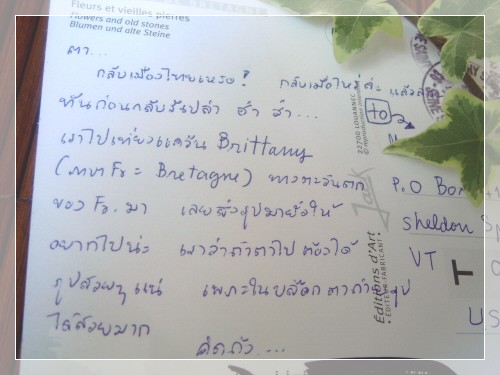 Fleurs et vieilles pierres
Flowers and old stones
Blumen und alte Steine
ตา...
กลับเมืองไทยเหรอ? กลับเมื่อไหร่ล่ะ แล้ว
ทันก่อนกลับรึเปล่า ฮ่า ฮ่า...
เราไปเที่ยวแคว้น Brittany
(ภาษา Fr = Bretagne) ทางตะวันตก
ของ Fr. มา เลยส่งรูปมายั่วให้
อยากไปน่ะ เราว่าถ้าตาไป ต้องได้
รูปสวยๆ แน่ เพราะในบล็อกตาถ่ายรูป
ได้สวยมาก
คิดถึง...
to
Jack
22700 LOUANNEC
Editions d'Art
EDITEUR FABRICANT
P.O Box
Sheldon
VT
T
US